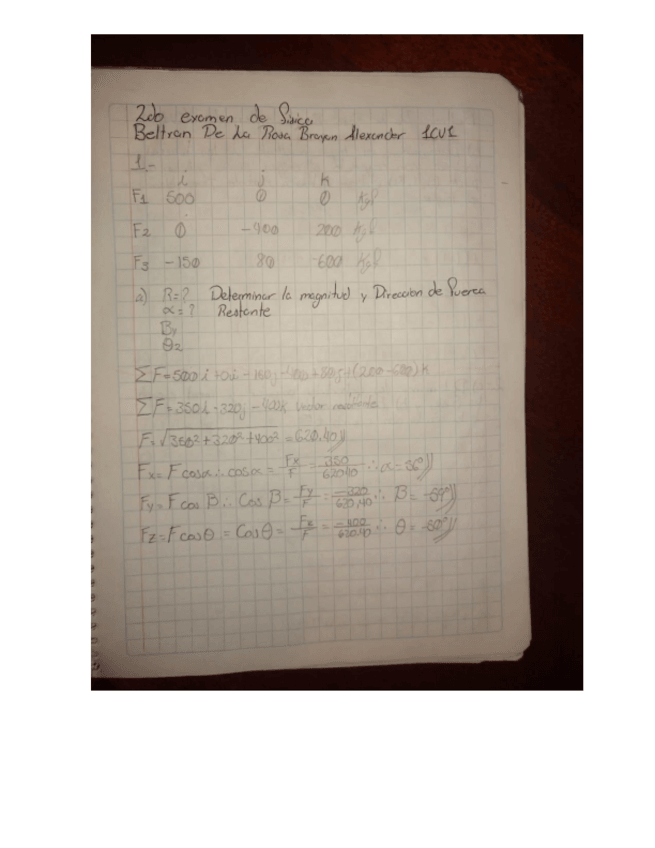 2do examen de Fisica
Beltran De La Rosa Brayan Alexander 1CV1
1.-
i j k
F1 500 0 0 Kgf
F2 0 -400 200 Kgf
F3 -150 80 -600 Kgf
a) R=? Determinar la magnitud y Direccion de Fuerza
α=? Resltante
By
θz
ΣF=500i+0i-150i-400+80j+(200-600)k
ΣF=350i-320j-400k vector resultante
F=√350²+320²+400² = 620.40//
Fx=F cosα∴cosα= Fx/F = 350/620.40 ∴ α=56°//
Fy=F cos B∴ Cos B= Fy/F = -320/620.40 ∴ B= -59°//
Fz=F cosθ = Cosθ= Fz/F = -400/620.40 ∴ θ= -50°//